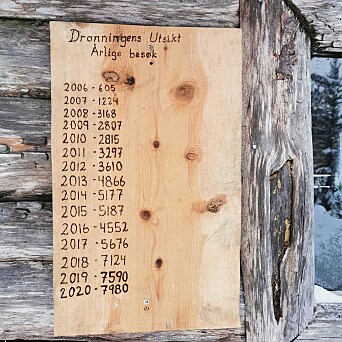 Dronningens Utsikt
Årlige besøk
2006 - 605
2007 - 1224
2008 - 3168
2009 - 2807
2010 - 2815
2011 - 3297
2012 - 3610
2013 - 4866
2014 - 5177
2015 - 5187
2016 - 4552
2017 - 5676
2018 - 7124
2019 - 7590
2020 - 7980